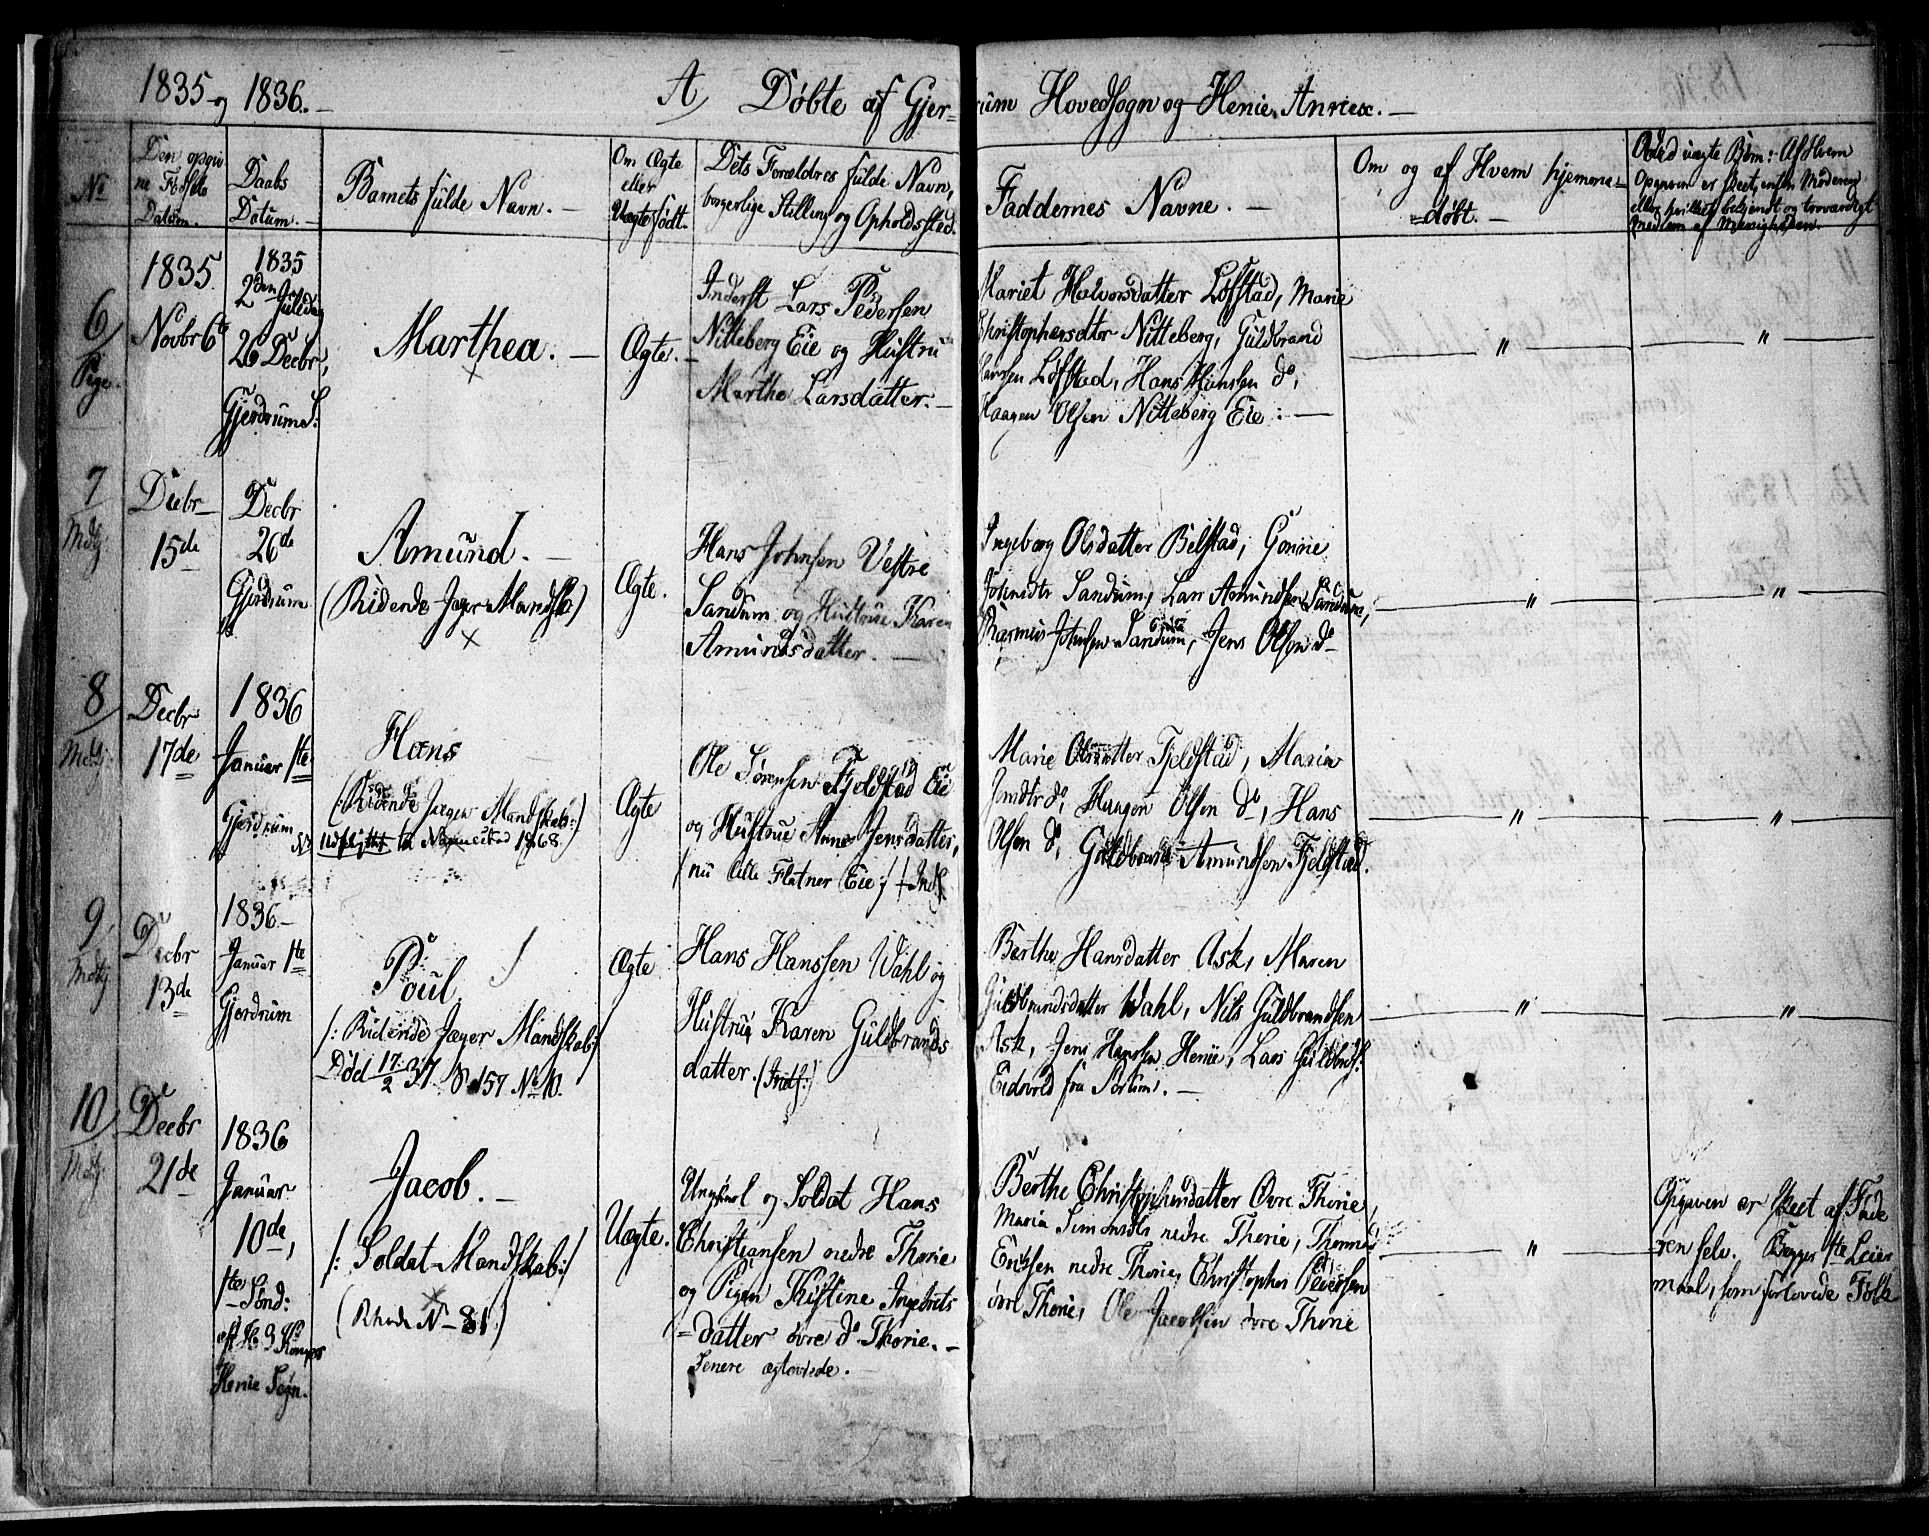 1835 og 1836. —
A, Døbte af Gjer=
rum Hovedsogn og Henie Annex. —
No
Den opgiv
ne Fødsels
Datum.
Daabs
Datum. —
Barnets fulde Navn. —
Om Ægte
eller
Uægte født.
Dets Forældres fulde Navn,
borgerlige Stilling og Opholdssted.
Faddernes Navne. —
Om og af Hvem hjemme
=døbt. —
Ved uægte Børn: Af Hvem
Opgaven er skeet, enten Moderen
eller hvilket bekjendt og troværdigt
Medlem af Menigheden.
6
Pige.
1835.
Novbr 6te
1835
2den Juledag
26 Decbr,
Gjerdrums S:
Marthea. —
Ægte. —
Inderst Lars Pedersen
Nitteberg Eie og Hustru
Marthe Larsdatter. —
Mariet Halvorsdatter Løfstad, Marie
Christophersdtor Nitteberg, Guldbrand
Hansen Løfstad, Hans Hansen do,
Haagen Olsen Nitteberg Eie : —
"
"
7
Mdg
Decbr
15de
Decbr
26de
Gjerdrum
Amund. —
(Ridende Jæger Mandsk)
Ægte.
Hans Johnsen Vestre
Sandum og Hustrue Karen
Amundsdatter. —
Ingeborg Olsdatter Bølstad, Gonnie
Johnsdtr Sandum, Lars Amundsen Sandum,
Rasmus Johnsen Sandum, Jens Olsen do
"
"
8
Mdg.
Decbr
17de
1836
Januar 1ste
Gjerdrum
Hans
(:Ridende Jæger Mandskab:)
Udflyttet til Nannestad 1868.
Ægte
Ole Sørensen Fjeldstad Eie
og Hustrue Anne Jensdatter,
/nu lille Flatner Eie,/ /Inds.
Marie Olsdatter Fjeldstad, Maria
Jensdtr do, Haagen Olsen do, Hans
Olsen do, Guldbrand Amundsen Fjeldstad.
"
"
9
Mdg
Decbr
13de
1836 —
Januar 1ste
Gjerdrum
Poul
/: Ridende Jæger Mandskab:/
Død 17/2 37 S 157 No 10.
Ægte
Hans Hanssen Wahl og
Hustrue Karen Guldbrands
datter. (Inds:)
Berthe Hansdatter Ask, Maren
Guldbrandsdatter Wahl, Nils Guldbrandsen
Ask, Jens Hanssen Henie, Lars Guldbrds:
Eidsvold fra Sørum. —
"
"
10
Mdg.
Decbr
21de
1836
Januar
10de,
1ste Sønd:
eft. H. 3 Konger
Henie Sogn.
Jacob. —
/: Soldat-Mandskab:/
(Rhode No 81)
Uægte.
Ungkarl og Soldat Hans
Christiansen nedre Thorie
og Pigen Kistine Ingebrits
=datter øvre do Thorie. —
senere ægteviede. —
Berthe Christophersdatter Øvre Thorie,
Maria Simonsdtr nedre Thorie, Thomas
Erichsen nedre Thorie, Christopher Pedersen
øvre Thorie, Ole Jacobsen øvre Thorie
"
Opgaven er skeet af Fade
ren selv. Begges 1ste Leier
maal, som forlovede Folk